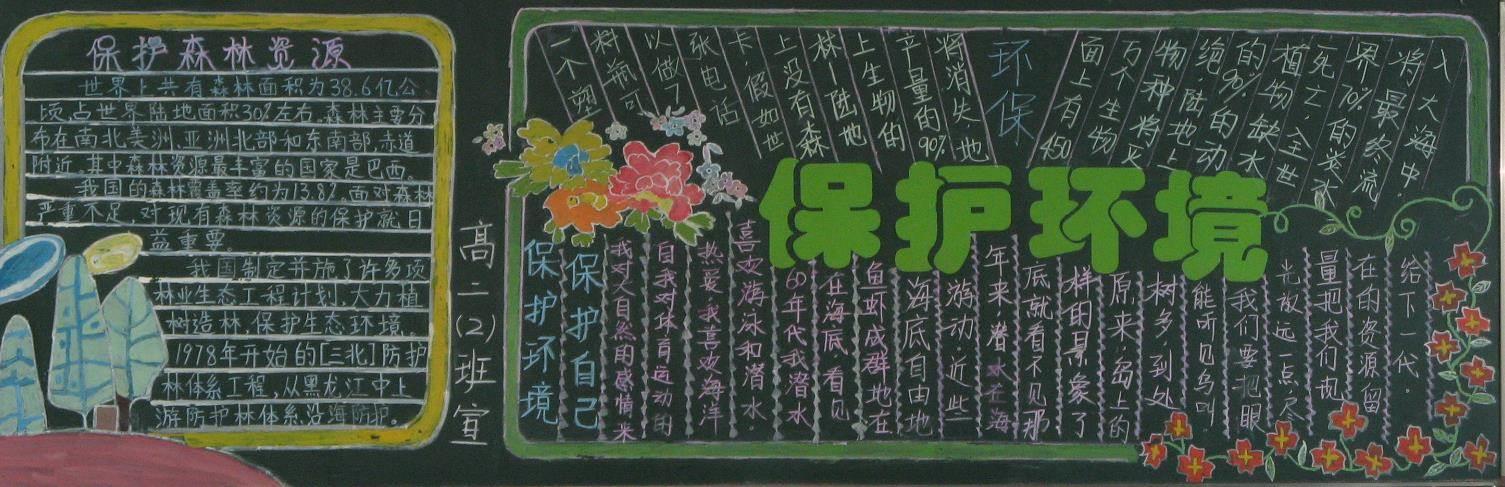 保护森林资源
世界上共有森林面积为38.6亿公
顷,占世界陆地面积30%左右.森林主要分
布在南北美洲,亚洲北部和东南部,赤道
附近.其中森林资源最丰富的国家是巴西。
我国的森林覆盖率约为13.8%.面对森林
严重不足,对现有森林资源的保护就日
益重要。
我国制定并施了许多项
林业生态工程计划,大力植
树造林,保护生态环境.
1978年开始的[三北]防护
林体系工程,从黑龙江中上
游防护林体系,沿海防护.
高二(2)班宣
保护环境
一个塑
料瓶可
以做了
张电话
卡,假如世
上没有森
林,陆地
上生物的
产量的90%
将消失地
环保
面上有450
万个生物
物种将灭
绝,陆地上
的90%的动
植物缺水
死亡,全世
界70%的淡水
将最终流
入大海中.
保护环境
保护自己
我对大自然的感情来
自我对体育运动的
热爱,我喜欢海洋
喜欢游泳和潜水.
60年代我潜水
在海底,看见
鱼虾成群地在
海底自由地
游动近些
年来,潜水在海
底就看不见那
样的景象了
原来,岛上的
树多,到处
能听见鸟叫
我们要把眼
光放远一点,尽
量把我们现
在的资源留
给下一代.